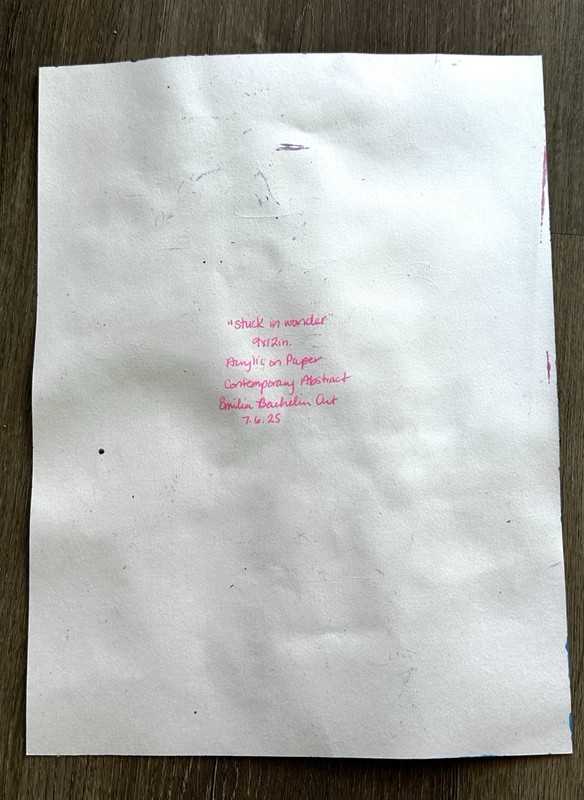 "stuck in wonder"
9x12in.
Acrylic on Paper
Contemporary Abstract
Emilia Bachelin Art
7.6.25